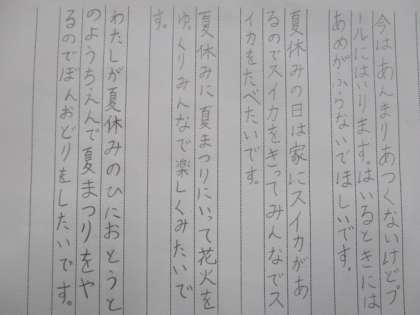 今はあんまりあつくないけどプ
ールにはいります。はいるときには
あめがふらないでほしいです。
夏休みの日は家にスイカがあ
るのでスイカをきってみんなでス
イカをたべたいです。
夏休みに夏まつりにいって花火を
ゆくりみんなで楽しくみたいで
す。
わたしが夏休みのひにおとうと
のようちえんで夏まつりをや
るのでぼんおどりをしたいです。